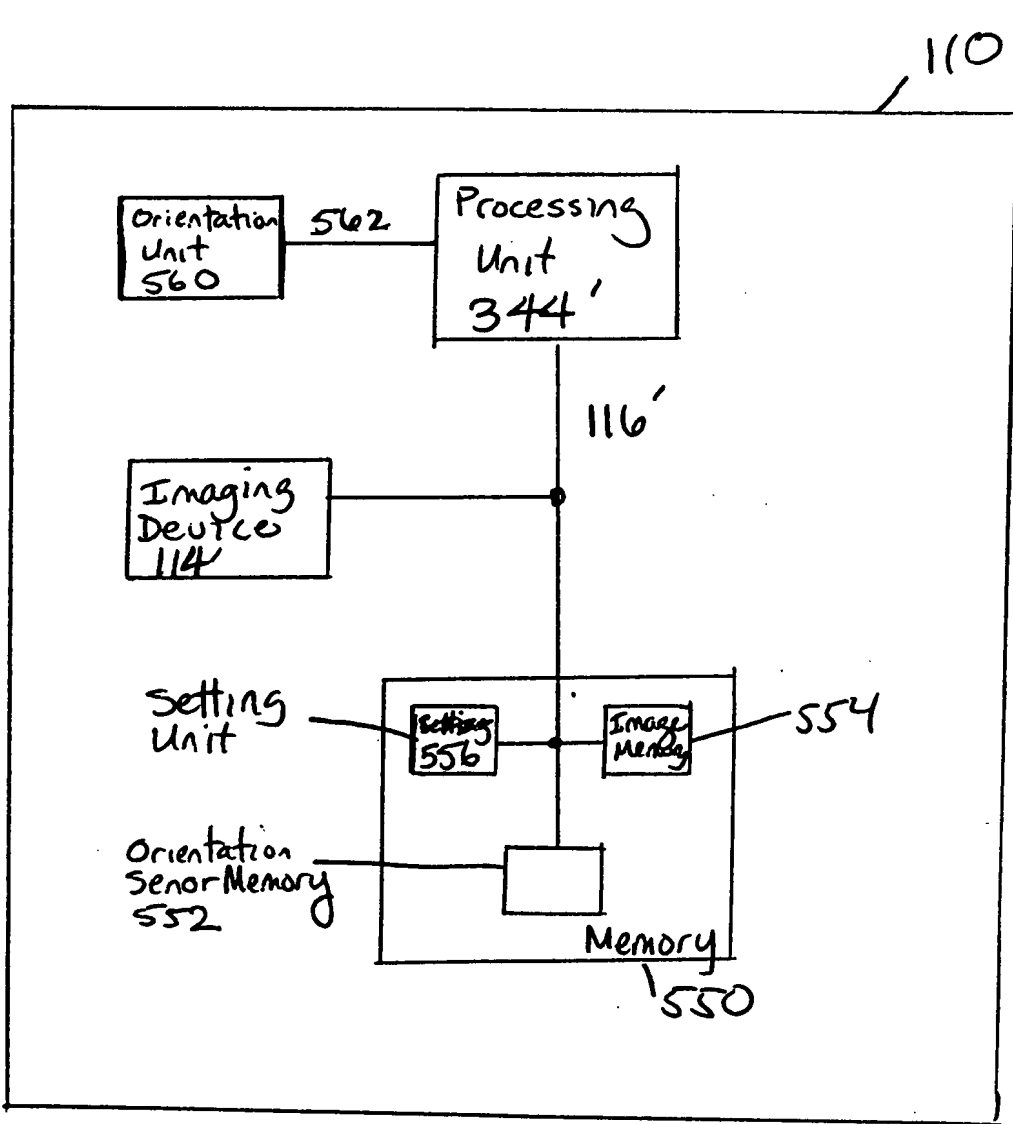 110
Orientation
Unit
560
562
Processing
Unit
344'
116'
Imaging
Device
114'
Setting
Unit
Setting
556
Image
Memory
554
Orientation
Senor Memory
552
Memory
550